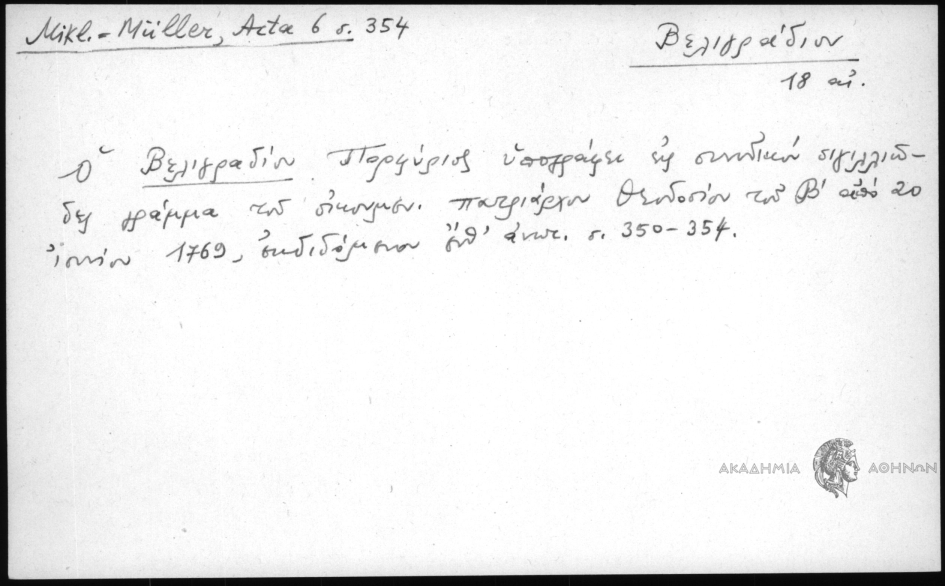 Mikl.-Müller, Acta 6 σ. 354
Βελιγράδιον
18 αἰ.
Ὁ Βελιγραδίου Πορφύριος ὑπογράφει εἰς συνοδικὸν σιγιλλιῶ-
δες γράμμα τοῦ οἰκουμεν. πατριάρχου Θεοδοσίου τοῦ Β' ἀπὸ 20
ἰουνίου 1769, ἐκδιδόμενον ἔνθ' ἀνωτ. σ. 350-354.
ΑΚΑΔΗΜΙΑ ΑΘΗΝΩΝ